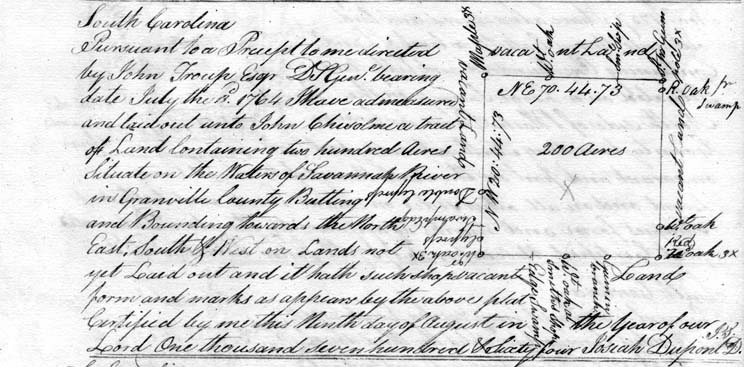 South Carolina
Pursuant to a Precept to me directed
by John Troup Esqr D. S. Genl. bearing
date July the 3d. 1764 I have admeasured
and laid out unto John Chisolme a tract
of Land Containing two hundred Acres
Situate on the Waters of Savannah River
in Granville County Butting
and Bounding towards the North
East, South & West on Lands not
yet Laid out and it hath such shape
form and marks as appears by the above plat
Certified by me this Ninth day of August in the Year of our
Lord One thousand seven hundred & Sixty four Josiah Dupont D.S.
Maple 3x
vacant Land
St. Oak
N E 70. 44.73
R. Oak in
Swamp
vacant Land
N W 20. 44.73
200 Acres
vacant Land
Wt oak
Red
oak 3x
vacant
Land